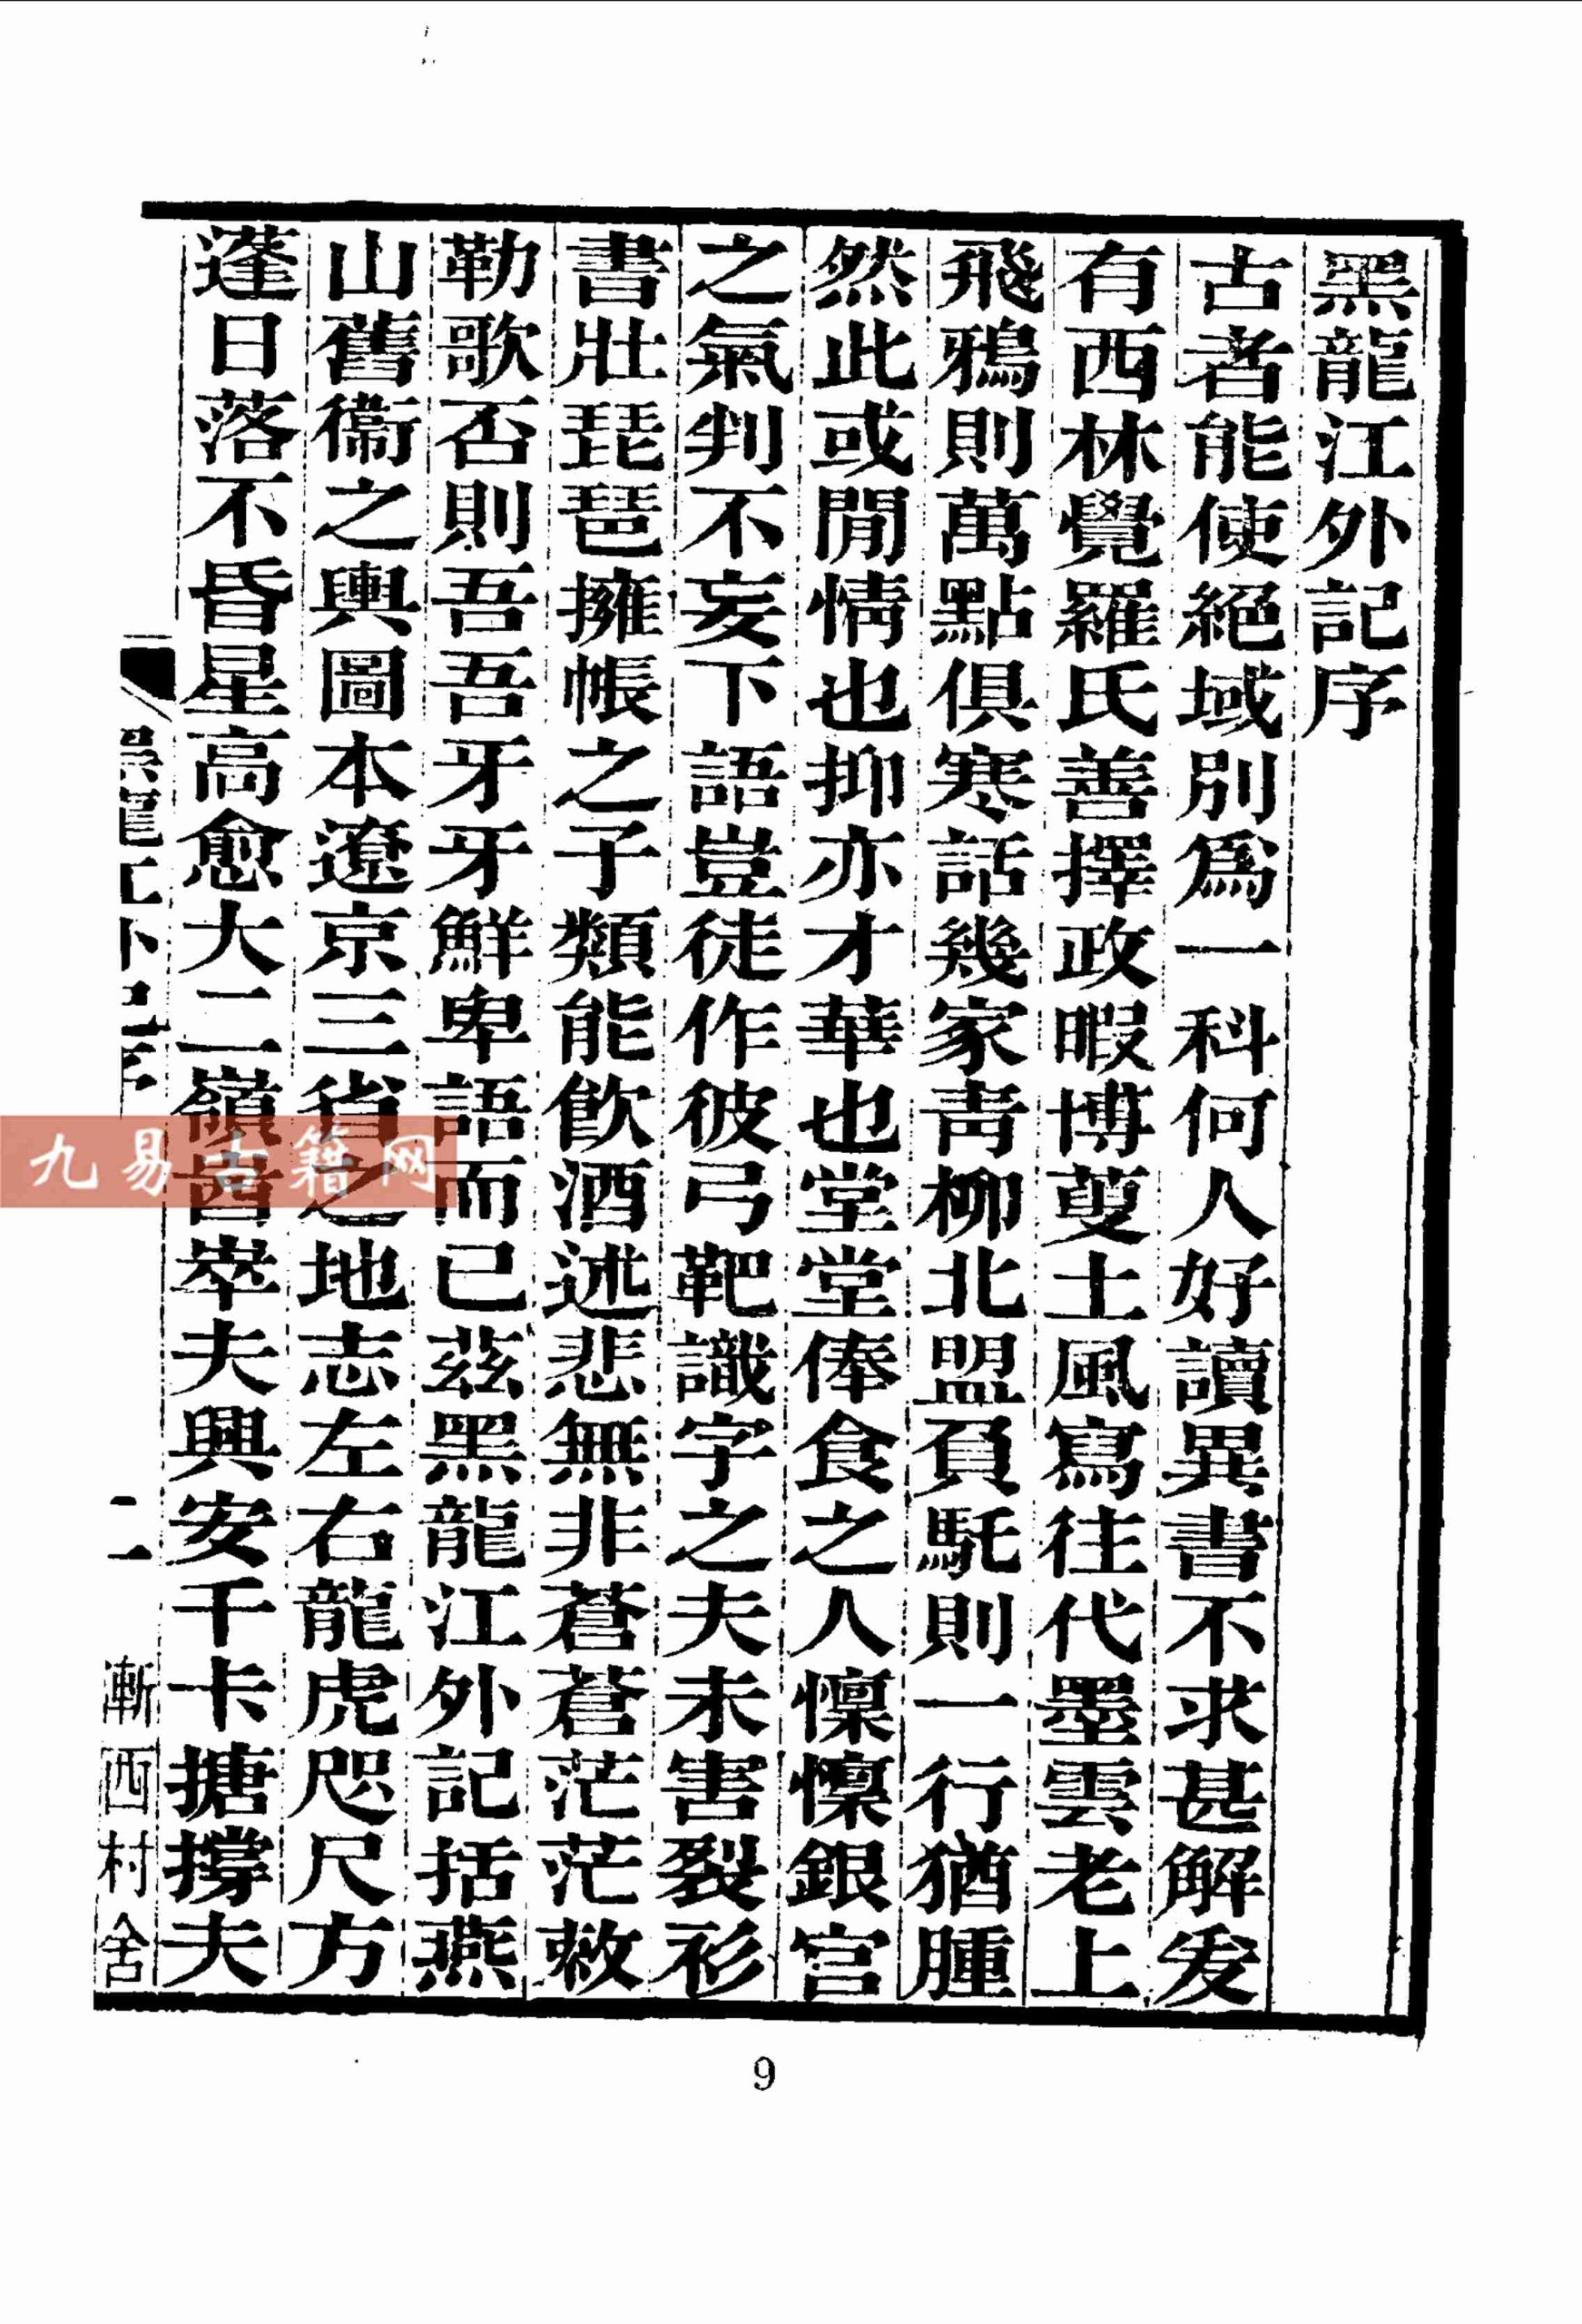 黑龍江外記序
古者能使絕域別爲一科何人好讀異書不求甚解爰
有西林覺羅氏善擇政暇博蒐土風寫往代墨雲老上
飛鴉則萬點俱寒話幾家靑柳北盟負馲則一行猶腫
然此或閒情也抑亦才華也堂堂俸食之人懍懍銀宮
之氣判不妄下語豈徒作彼弓靶識字之夫未害裂衫
書壯琵琶擁帳之子類能飮酒述悲無非蒼蒼茫茫敕
勒歌否則吾吾牙牙鮮卑語而已茲黑龍江外記括燕
山舊衞之輿圖本遼京三省之地志左右龍虎咫尺方
蓬日落不昏星高愈大二嶺崷崒夫興安千卡搪撐夫
黑龍江外記序
二
漸西村舍
九易古籍网
9